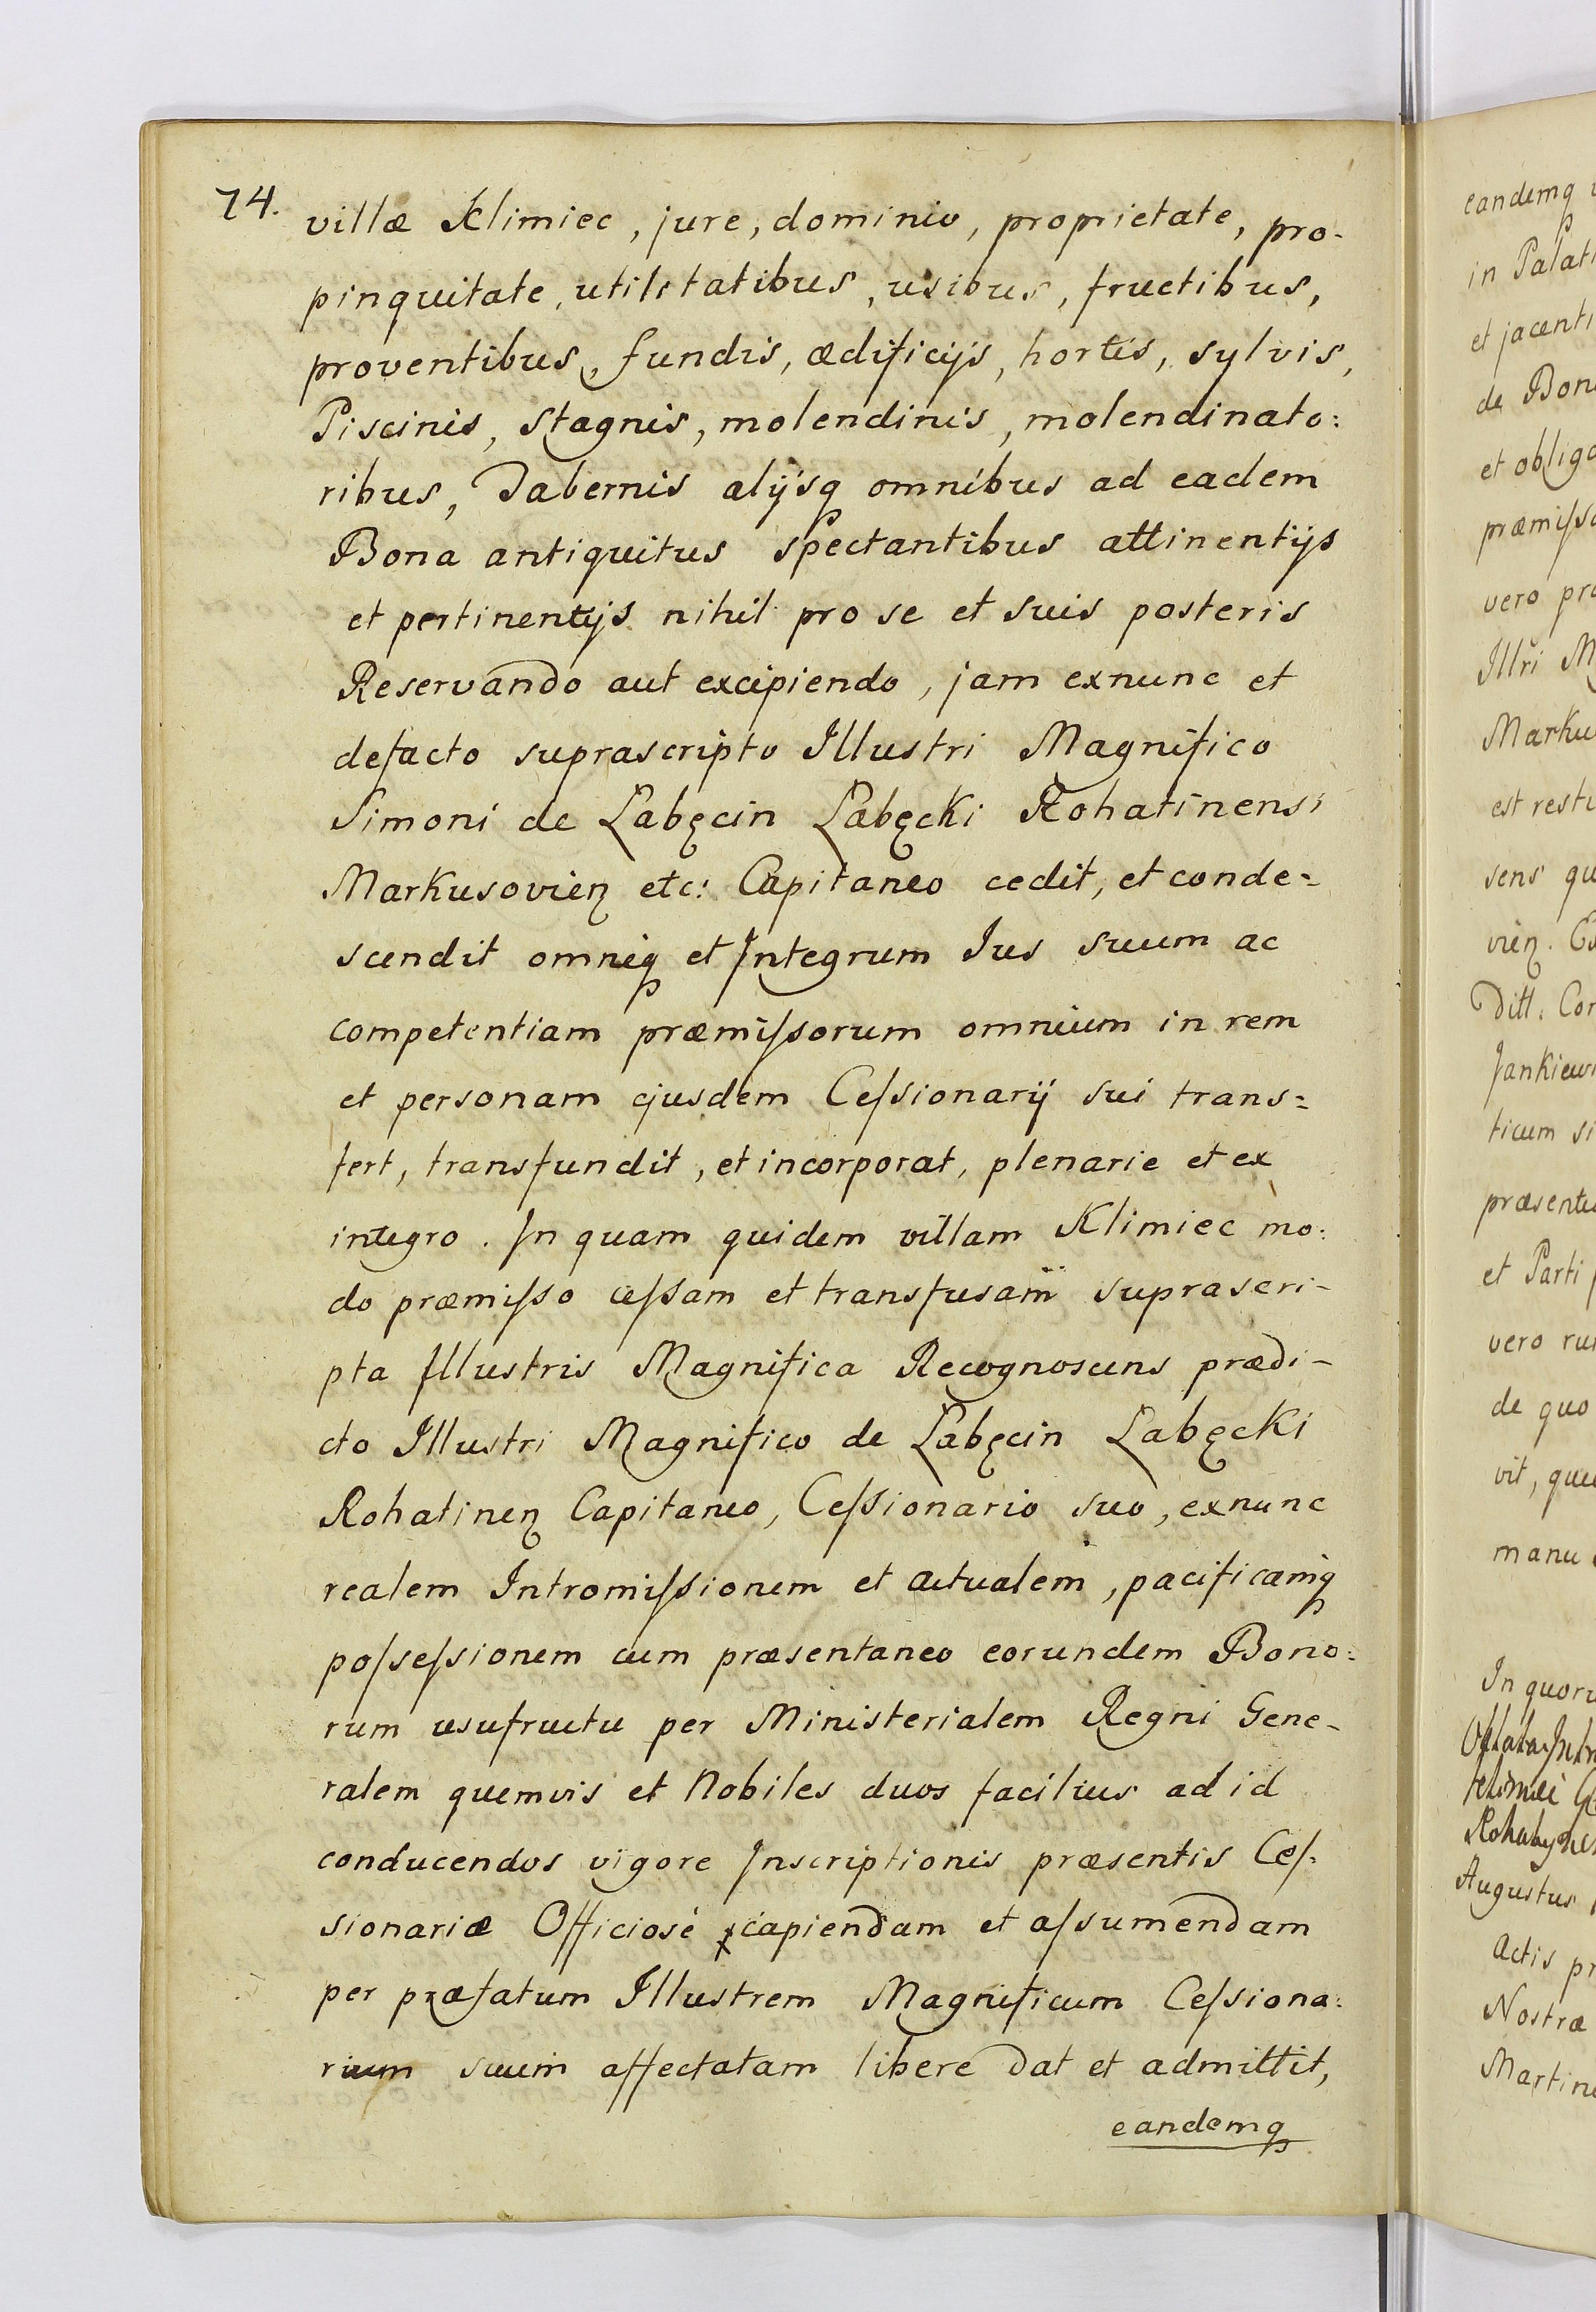 74.
villæ Klimiec, jure, dominio, proprietate, pro-
pinquitate, utilitatibus, usibus, fructibus,
proventibus, fundis, ædificijs, hortis, sylvis,
Piscinis, Stagnis, molendinis, molendinato:
ribus, Tabernis alijsq omnibus ad eadem
Bona antiquitus spectantibus attinentijs
et pertinentijs nihil pro se et suis posteris
Reservando aut excipiendo, jam exnunc et
defacto suprascripto Illustri Magnifico
Simoni de Łabęcin Łabęcki Rohatinensi
Markusovien etc: Capitaneo cedit, et conde=
scendit omneq et Integrum Ius suum ac
competentiam præmiſsorum omnium in rem
et personam ejusdem Ceſsionarij sui trans=
fert, transfundit, et incorporat, plenarie et ex
integro. In quam quidem villam Klimiec mo:
do præmiſso ceſsam et transfusam suprascri-
pta Illustris Magnifica Recognoscens prædi-
cto Illustri Magnifico de Łabęcin Łabęcki
Rohatinen Capitaneo, Ceſsionario suo, exnunc
realem Intromiſsionem et actualem, pacificamq
poſseſsionem cum præsentaneo eorundem Bono:
rum usufructu per Ministerialem Regni Gene-
ralem quemvis et Nobiles duos facilius ad id
conducendos vigore Inscriptionis præsentis Ceſ:
sionariæ Officiosè capiendam et aſsumendam
per præfatum Illustrem Magnificum Ceſsiona:
rium suum affectatam libere dat et admittit,
eandemq
eandemq
in Palati
et jacenti
de Bon
et obliga
præmiſso
vero
Illri M
Marku
est resti
sens qu
vien.
Ditt. Cor
Jankiewi
ticum si
præsente
et Parti
vero
de quo
vit, que
manu
In quoru
Augustus
Actis pr
Nostræ
Martin